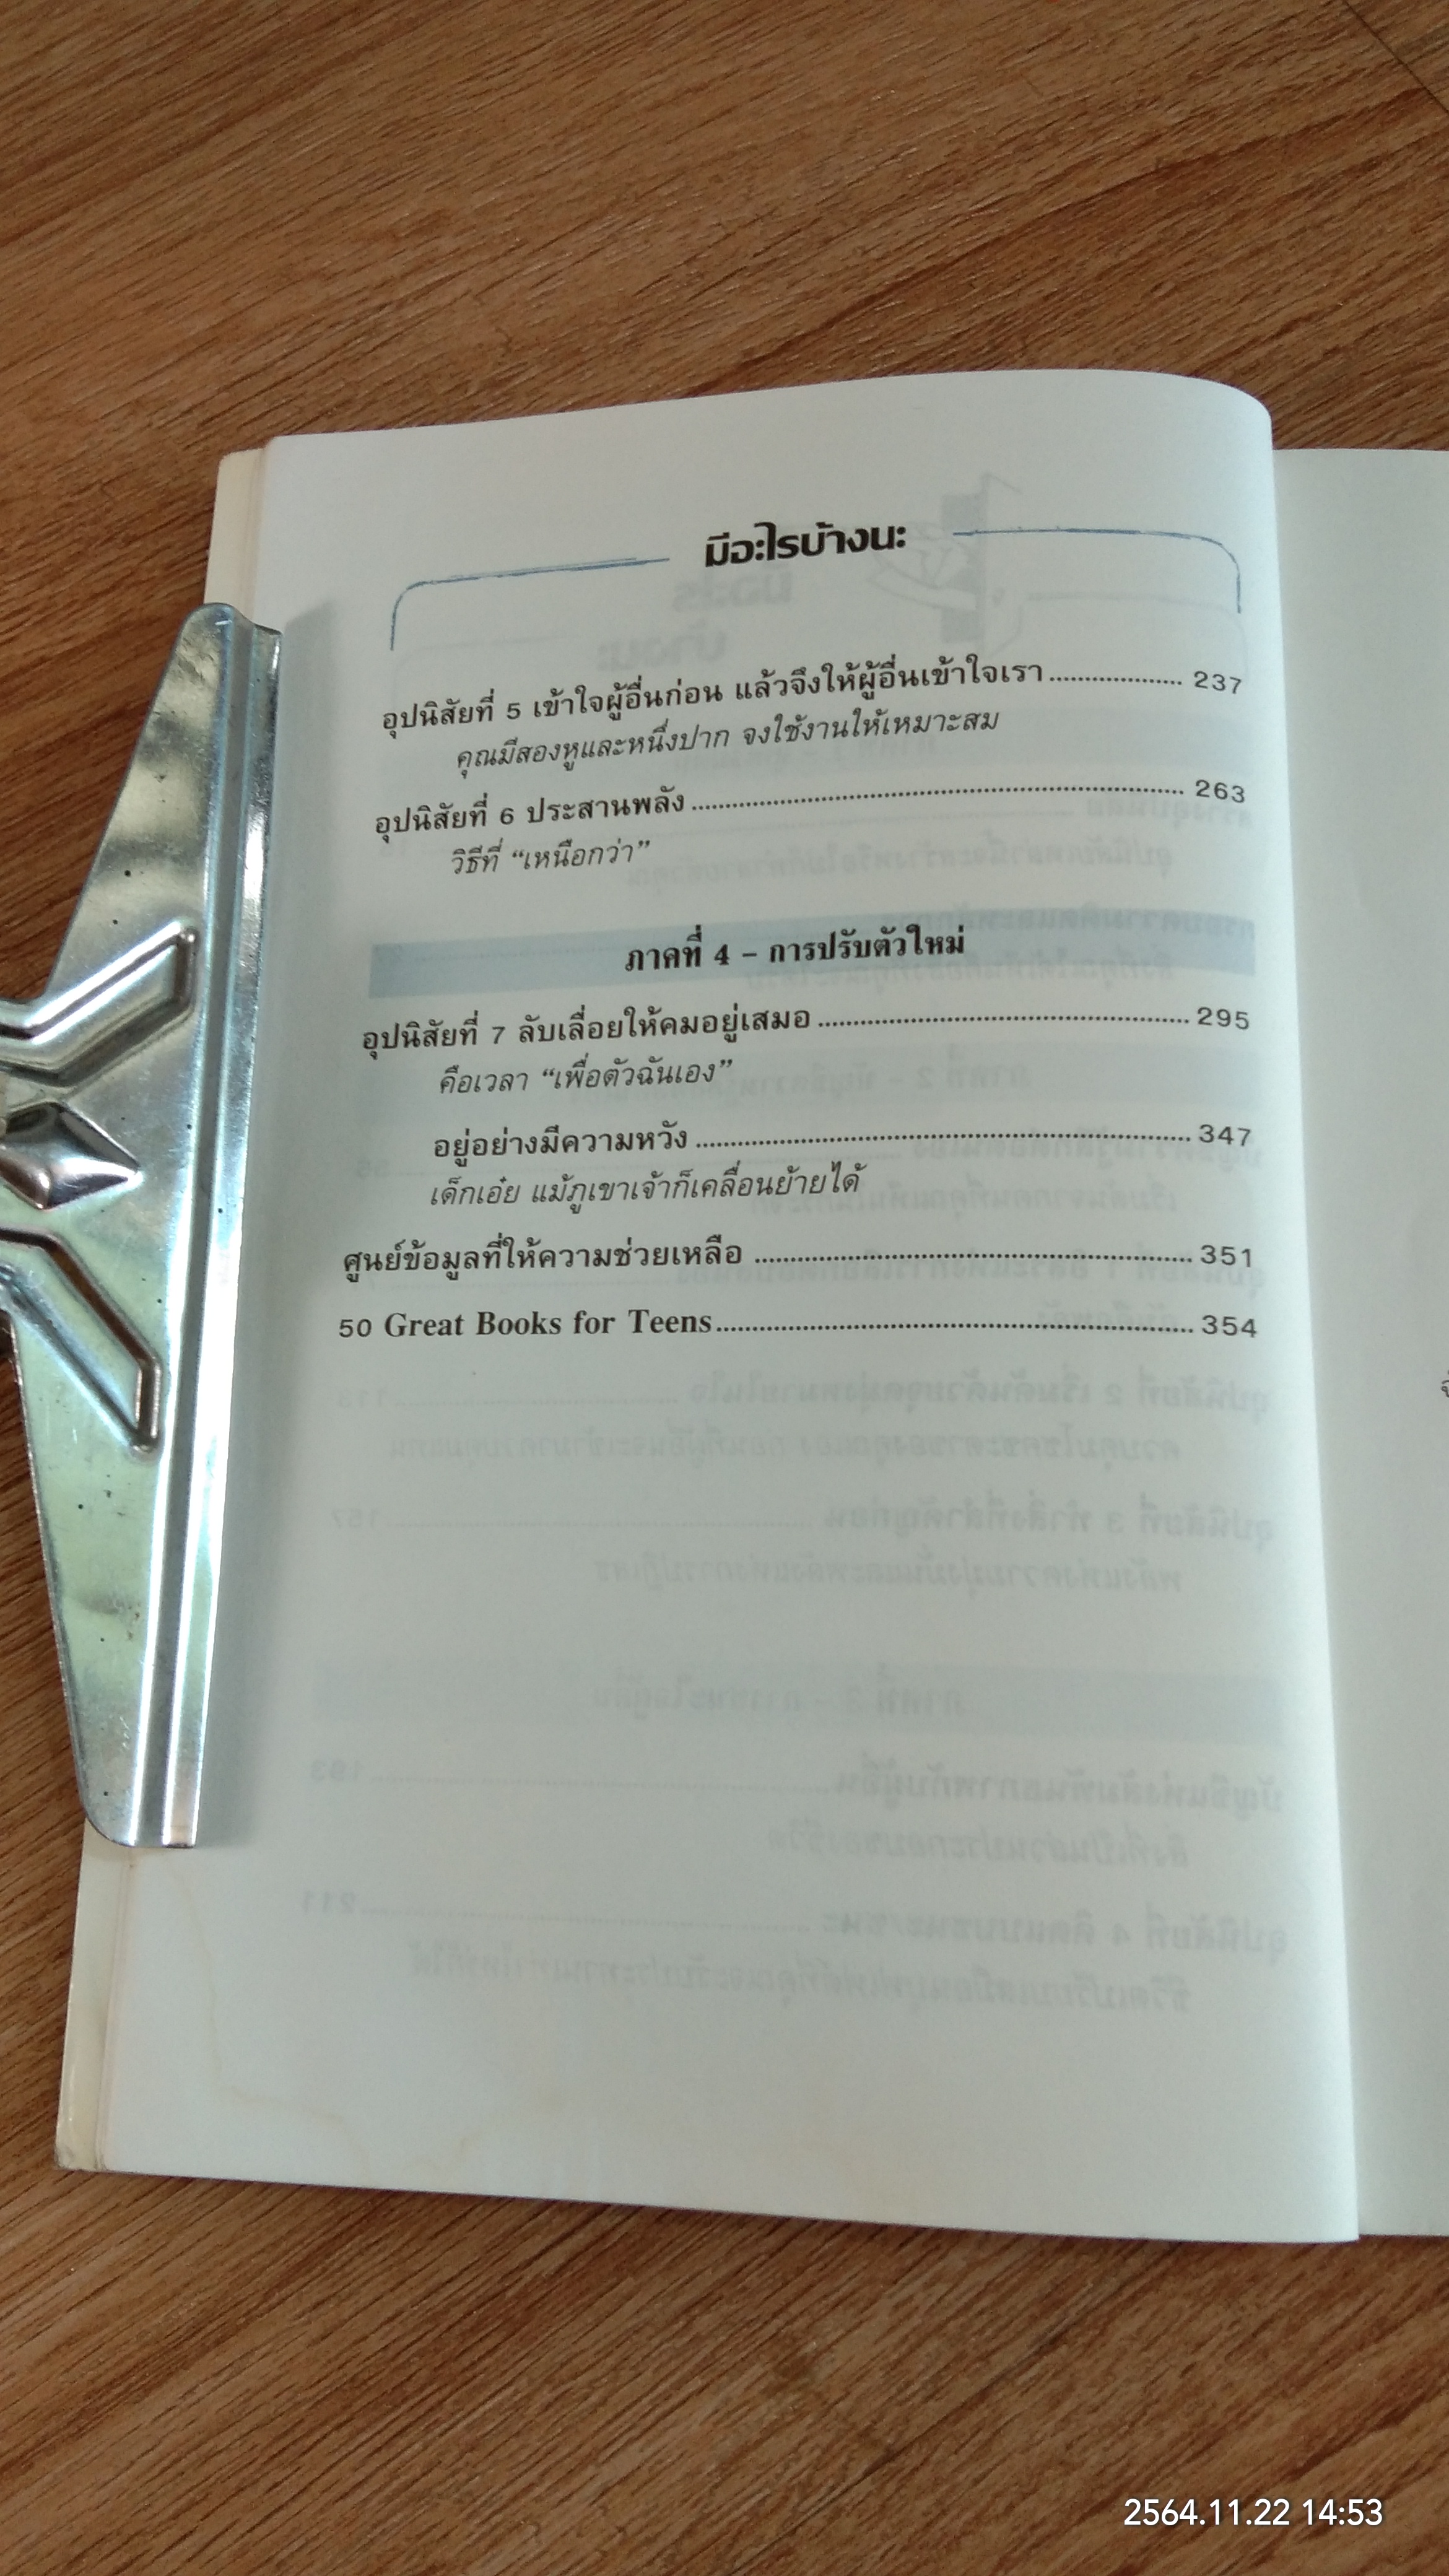 มีอะไรบ้างนะ
อุปนิสัยที่ 5 เข้าใจผู้อื่นก่อน แล้วจึงให้ผู้อื่นเข้าใจเรา .................... 237
คุณมีสองหูและหนึ่งปาก จงใช้งานให้เหมาะสม
อุปนิสัยที่ 6 ประสานพลัง .................... 263
วิธีที่ “เหนือกว่า”
ภาคที่ 4 – การปรับตัวใหม่
อุปนิสัยที่ 7 ลับเลื่อยให้คมอยู่เสมอ .................... 295
คือเวลา “เพื่อตัวฉันเอง”
อยู่อย่างมีความหวัง .................... 347
เด็กเอ๋ย แม้ภูเขาเจ้าก็เคลื่อนย้ายได้
ศูนย์ข้อมูลที่ให้ความช่วยเหลือ .................... 351
50 Great Books for Teens .................... 354
2564.11.22 14:53